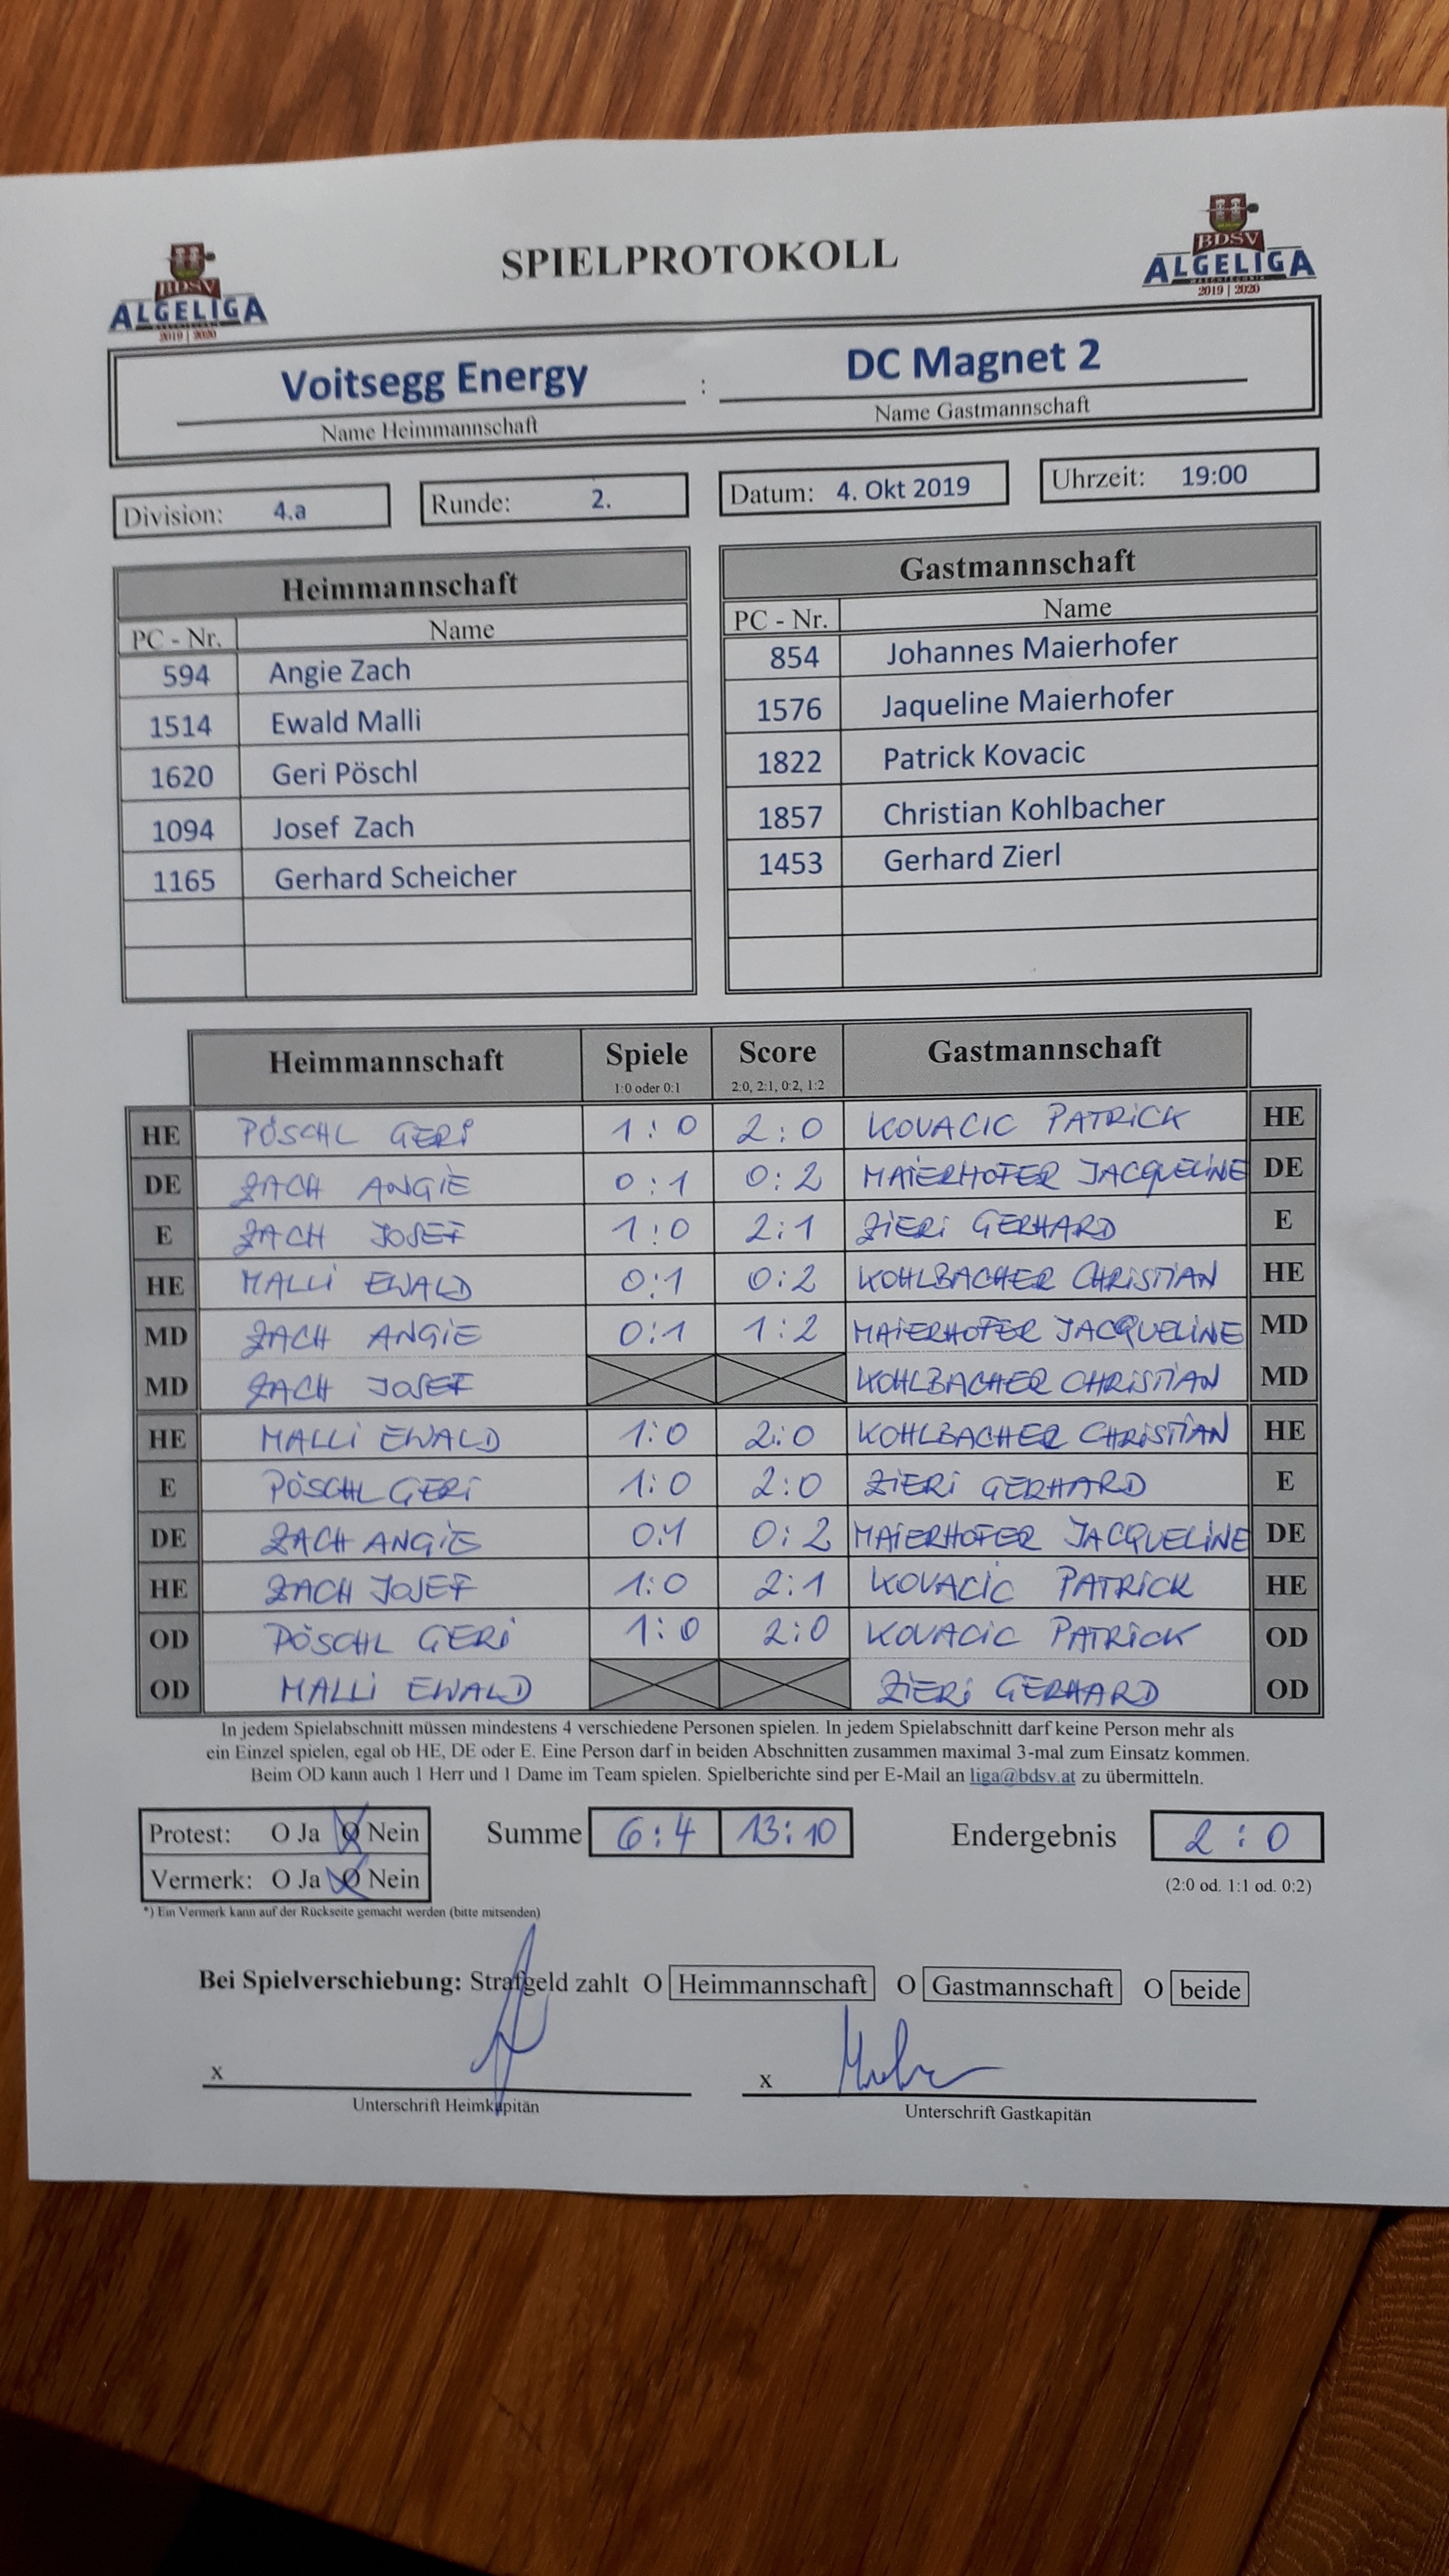 SPIELPROTOKOLL
BDSV
ALGELIGA
2019 | 2020
BDSV
ALGELIGA
2019 | 2020
Voitsegg Energy : DC Magnet 2
Name Heimmannschaft Name Gastmannschaft
Division: 4.a Runde: 2. Datum: 4. Okt 2019 Uhrzeit: 19:00
Heimmannschaft
PC - Nr. Name
594 Angie Zach
1514 Ewald Malli
1620 Geri Pöschl
1094 Josef Zach
1165 Gerhard Scheicher
Gastmannschaft
PC - Nr. Name
854 Johannes Maierhofer
1576 Jaqueline Maierhofer
1822 Patrick Kovacic
1857 Christian Kohlbacher
1453 Gerhard Zierl
Heimmannschaft Spiele Score Gastmannschaft
1:0 oder 0:1 2:0, 2:1, 0:2, 1:2
HE PÖSCHL GERI 1:0 2:0 KOVACIC PATRICK HE
DE ZACH ANGIE 0:1 0:2 MAIERHOFER JACQUELINE DE
E ZACH JOSEF 1:0 2:1 ZIERI GERHARD E
HE MALLI EWALD 0:1 0:2 KOHLBACHER CHRISTIAN HE
MD ZACH ANGIE 0:1 1:2 MAIERHOFER JACQUELINE MD
MD ZACH JOSEF KOHLBACHER CHRISTIAN MD
HE MALLI EWALD 1:0 2:0 KOHLBACHER CHRISTIAN HE
E PÖSCHL GERI 1:0 2:0 ZIERI GERHARD E
DE ZACH ANGIE 0:1 0:2 MAIERHOFER JACQUELINE DE
HE ZACH JOSEF 1:0 2:1 KOVACIC PATRICK HE
OD PÖSCHL GERI 1:0 2:0 KOVACIC PATRICK OD
OD MALLI EWALD ZIERI GERHARD OD
In jedem Spielabschnitt müssen mindestens 4 verschiedene Personen spielen. In jedem Spielabschnitt darf keine Person mehr als
ein Einzel spielen, egal ob HE, DE oder E. Eine Person darf in beiden Abschnitten zusammen maximal 3-mal zum Einsatz kommen.
Beim OD kann auch 1 Herr und 1 Dame im Team spielen. Spielberichte sind per E-Mail an liga@bdsv.at zu übermitteln.
Protest: O Ja O Nein Summe 6:4 13:10 Endergebnis 2:0
Vermerk: O Ja O Nein (2:0 od. 1:1 od. 0:2)
*) Ein Vermerk kann auf der Rückseite gemacht werden (bitte mitsenden)
Bei Spielverschiebung: Strafgeld zahlt O Heimmannschaft O Gastmannschaft O beide
x x
Unterschrift Heimkapitän Unterschrift Gastkapitän